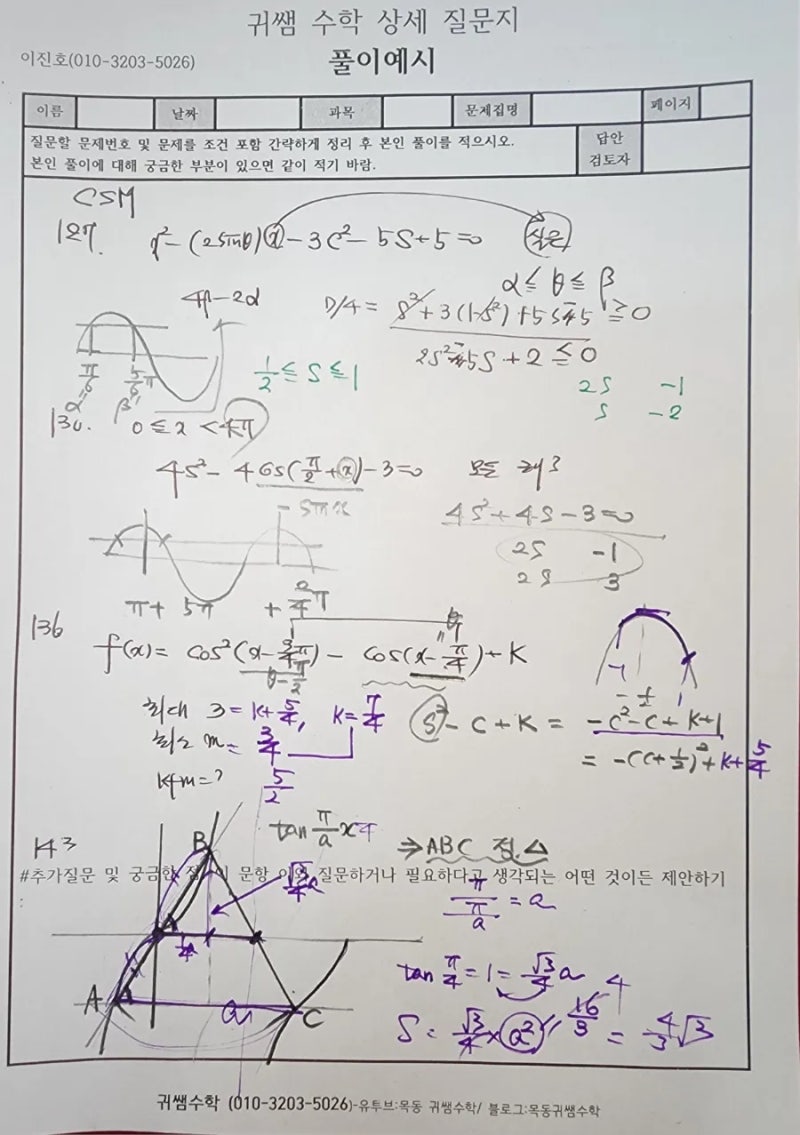 귀쌤 수학 상세 질문지
이진호(010-3203-5026)
풀이예시
이름 날짜 과목 문제집명 페이지
질문할 문제번호 및 문제를 조건 포함 간략하게 정리 후 본인 풀이를 적으시오.
본인 풀이에 대해 궁금한 부분이 있으면 같이 적기 바람.
답안
검토자
CSM
127. x² - (2sinθ)x - 3C² - 5S + 5 = 0 실근
α ≤ θ ≤ β
4β - 2α
D/4 = S² + 3(1-S²) + 5S - 5 ≥ 0
2S² - 5S + 2 ≤ 0
1/2 ≤ S ≤ 1
2S -1
S -2
π/6 5/6π
α β
130. 0 ≤ x < 4π
4S² - 4cos(π/2 + x) - 3 = 0 모든 해?
- sinx
4S² + 4S - 3 = 0
2S -1
2S 3
π + 5π + 2/4π
136 f(x) = cos²(x - 3/4π) - cos(x - π/4) + K
θ - π/2
θ
최대 3 = K + 5/4, K = 7/4
S² - C + K = -C² - C + K + 1
최소 m = 3/4
= -(C + 1/2)² + K + 5/4
K+m = ? 5/2
-1 -1/2 1
143 tan π/a x
⇒ ABC 정△
#추가질문 및 궁금한 점 이 문항 이외 질문하거나 필요하다고 생각되는 어떤 것이든 제안하기
:
B
√3/4 a
π / (π/a) = a
1/4
tan π/4 = 1 = √3/4 a
A a C
S = √3/4 × a² 16/3 = 4/3 √3
4
귀쌤수학 (010-3203-5026)-유투브:목동 귀쌤수학/ 블로그:목동귀쌤수학